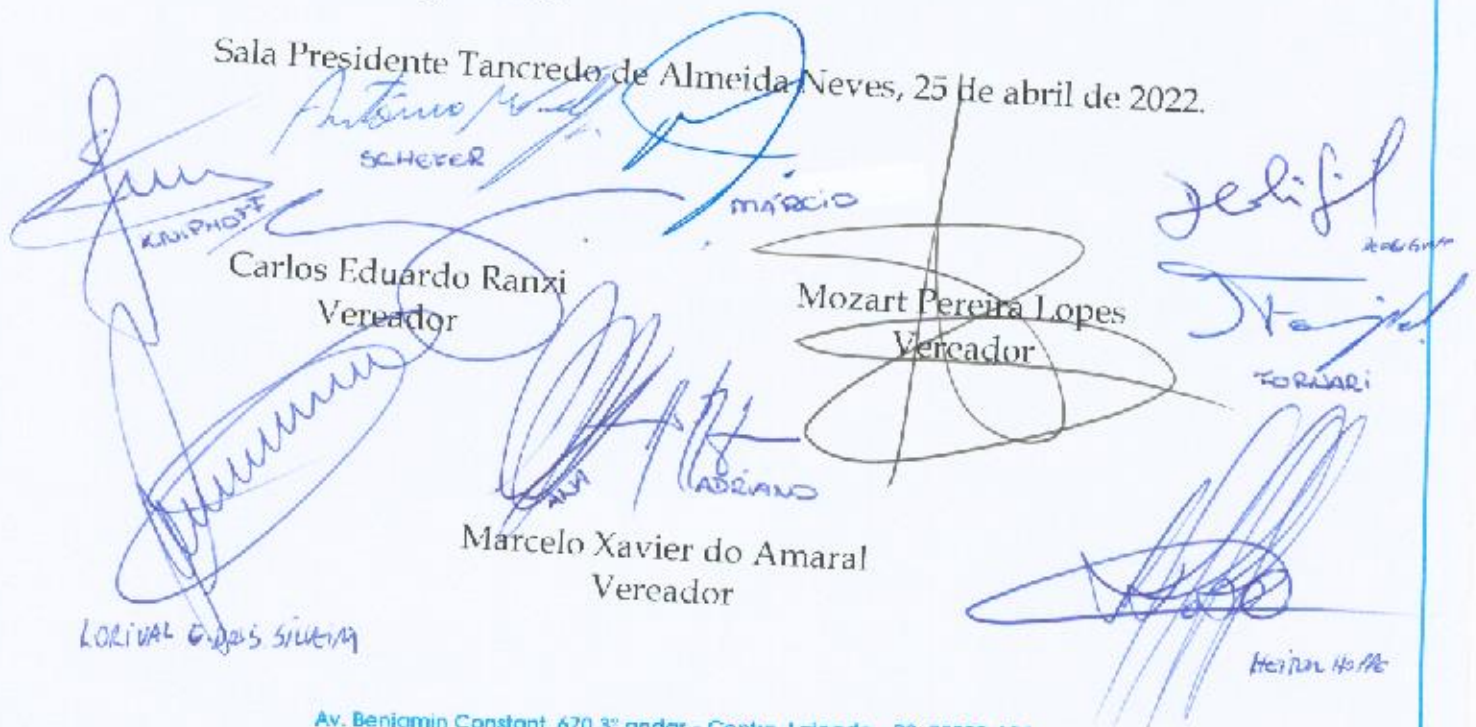 Sala Presidente Tancredo de Almeida Neves, 25 de abril de 2022.
Antônio
SCHEFER
KNIPHOFF
MÁRCIO
Carlos Eduardo Ranzi
Vereador
Mozart Pereira Lopes
Vereador
FORNARI
ANA
ADRIANO
Marcelo Xavier do Amaral
Vereador
LORIVAL SILVEIRA
Heitor Hoppe
Av. Benjamin Constant, 670 3º andar - Centro